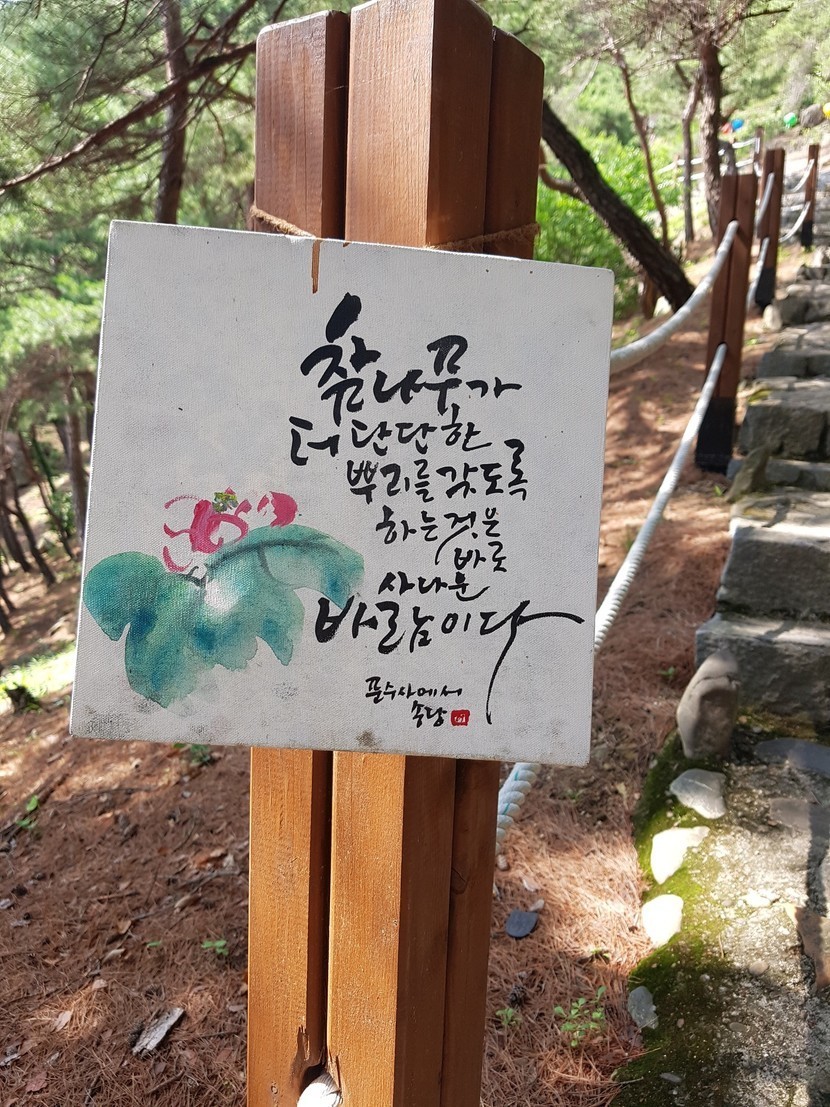 참나무가
더 단단한
뿌리를 갖도록
하는 것은
바로
사나운
바람이다
문수사에서
송당